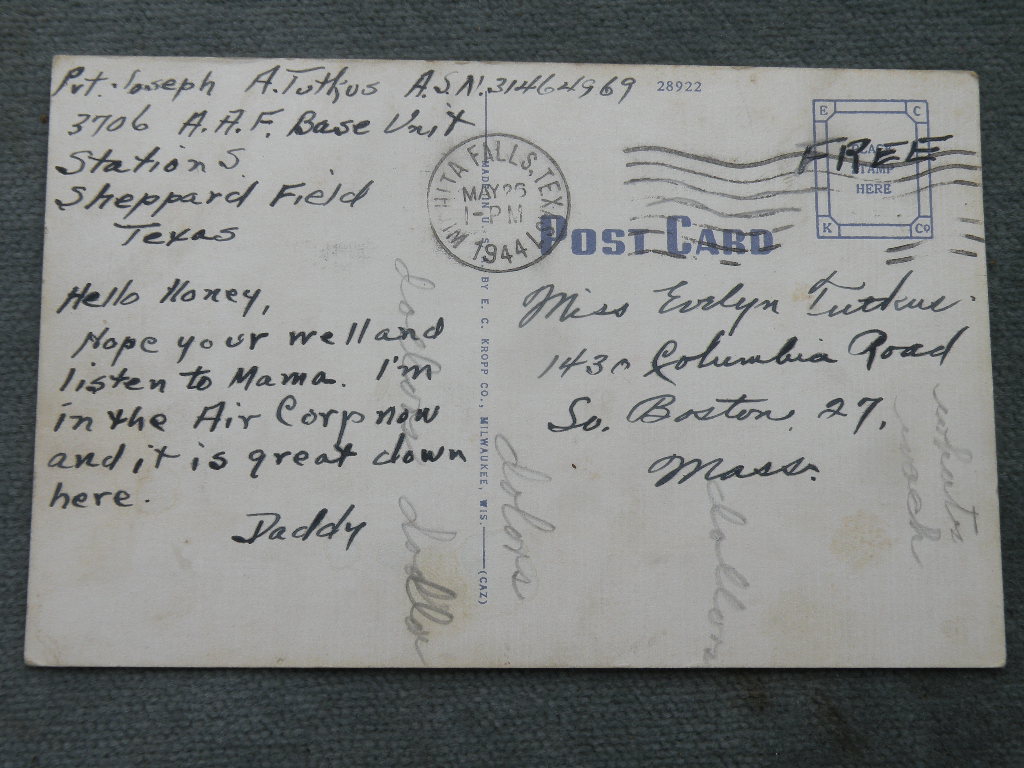 Pvt. Joseph A. Tutkus A.S.N. 31464969
3706 A.A.F. Base Unit
Station S.
Sheppard Field
Texas
Hello Honey,
Hope your well and
listen to Mama. I'm
in the Air Corp now
and it is great down
here.
Daddy
28922
WICHITA FALLS, TEXAS
MAY 26
1-PM
1944
MADE IN U.S.A. BY E. C. KROPP CO., MILWAUKEE, WIS. (CAZ)
E C
FREE
PLACE
STAMP
HERE
K Co
POST CARD
Miss Evelyn Tutkus.
1430 Columbia Road
So. Boston, 27,
Mass.
dollors
dolors
whats